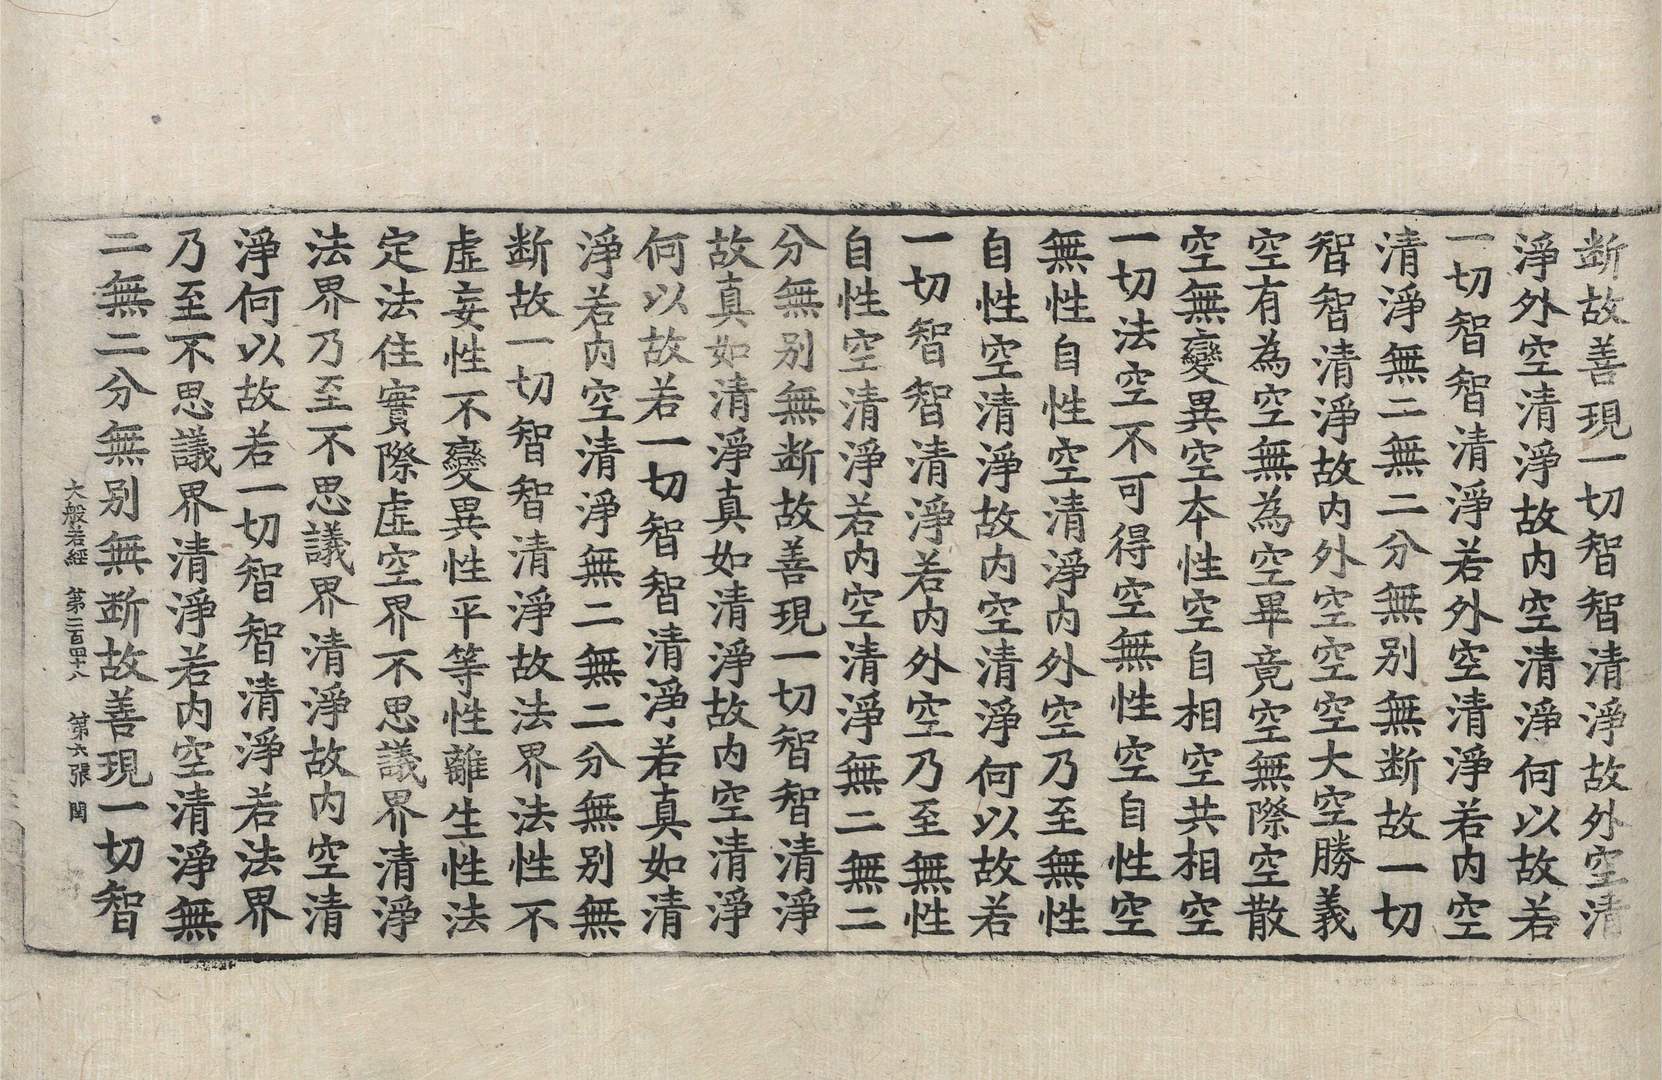 断故善現一切智智清淨故外空清
淨外空清淨故内空清淨何以故若
一切智智清淨若外空清淨若内空
清淨無二無二分無别無断故一切
智智清淨故内外空空空大空勝義
空有為空無為空畢竟空無際空散
空無變異空本性空自相空共相空
一切法空不可得空無性空自性空
無性自性空清淨内外空乃至無性
自性空清淨故内空清淨何以故若
一切智智清淨若内外空乃至無性
自性空清淨若内空清淨無二無二
分無别無断故善現一切智智清淨
故真如清淨真如清淨故内空清淨
何以故若一切智智清淨若真如清
淨若内空清淨無二無二分無别無
断故一切智智清淨故法界法性不
虛妄性不變異性平等性離生性法
定法住實際虛空界不思議界清淨
法界乃至不思議界清淨故内空清
淨何以故若一切智智清淨若法界
乃至不思議界清淨若内空清淨無
二無二分無别無断故善現一切智
大般若經 第二百四十八 第六張 閏